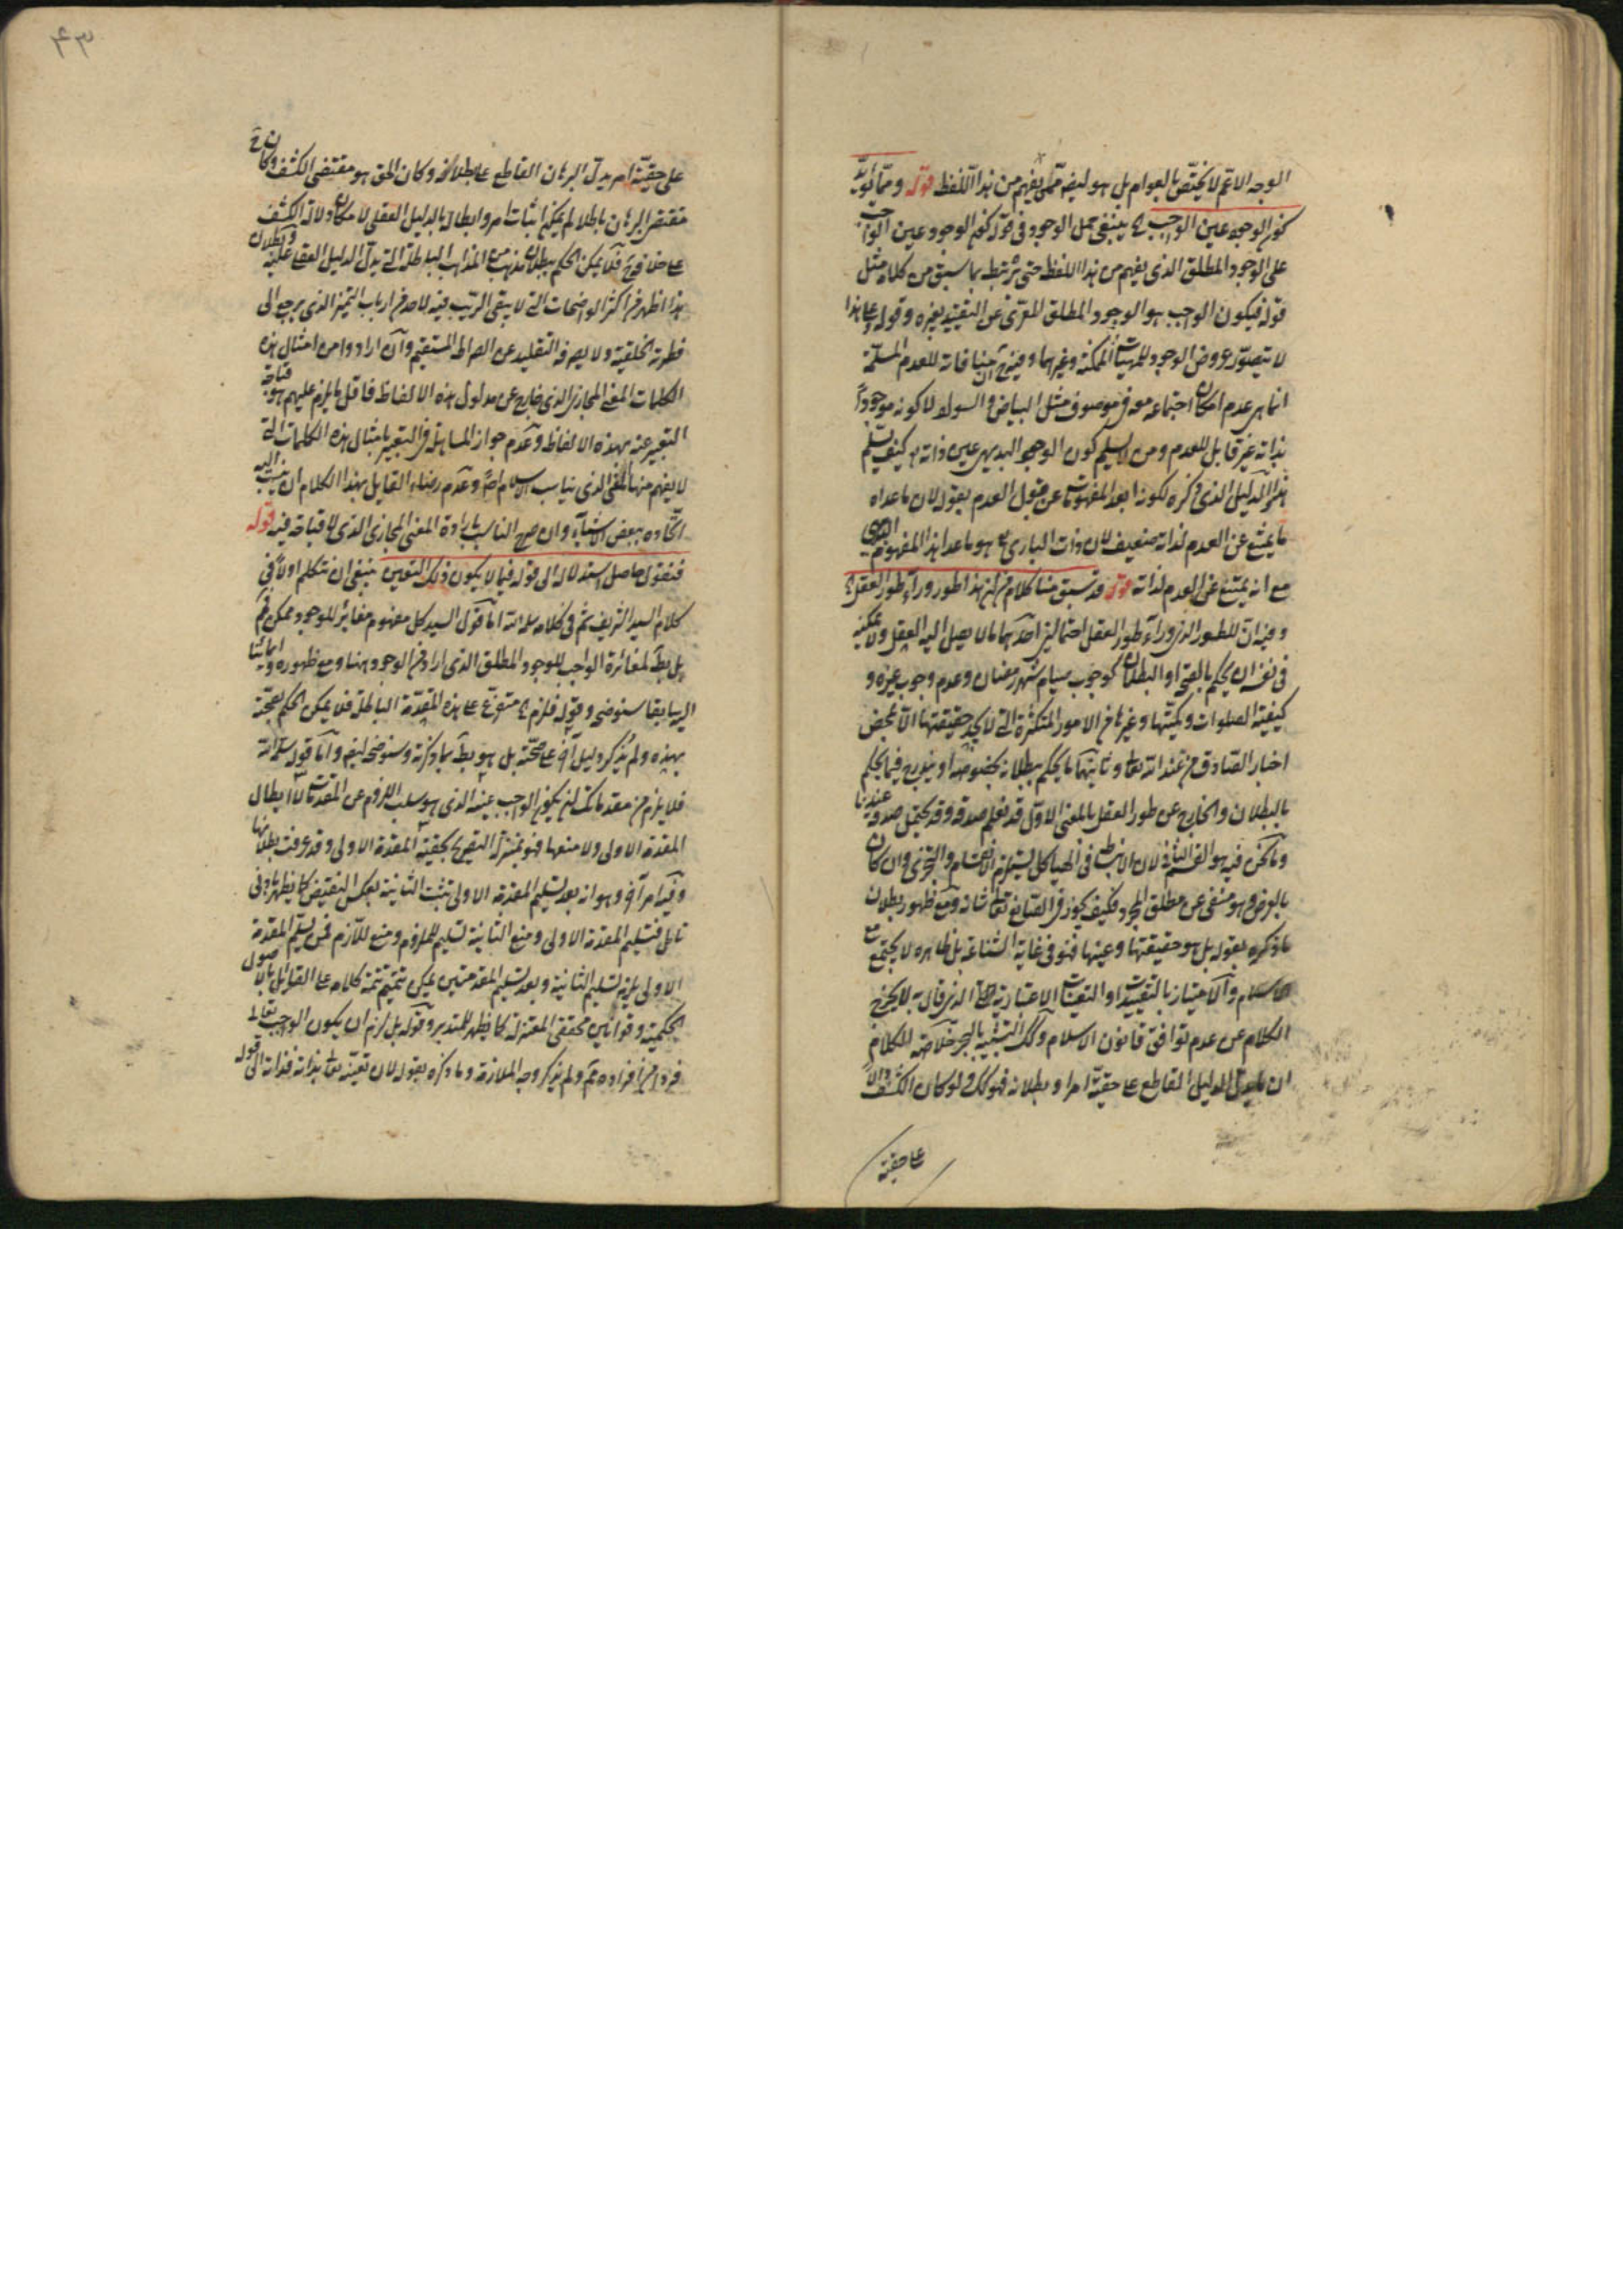 الوجه الاتم لا يختص بالعوام بل هو ليفهم يفهم من هذا اللفظ قوله ومما يؤيد
كون الوجود عين الواجب ينبغي حمل الوجود في قوله كون الوجود عين الواجب
على الوجود المطلق الذي يفهم من هذا اللفظ حتى يرتبط بما سبق من كلامه مثل
قوله فيكون الواجب هو الوجود المطلق المعرى عن التقييد بغيره وقوله وعلى هذا
لا يتصور عروض الوجود للمهيات الممكنة وغيرها وفيه ان منافاته للعدم المسلمة
انما هي عدم امكان اجتماعه معه في موصوف مثل البياض والسواد لا كونه موجوداً
بذاته غير قابل للعدم ومن لا يسلم كون الوجود البديهي عين ذاته كيف يسلم
هذا الدليل الذي ذكره لكونه ابعد المفهومات عن قبول العدم بقوله لان ما عداه
ما يمتنع عن العدم لذاته ضعيف لان ذات الباري هو ما عدا هذا المفهوم البديهي
مع انه يمتنع عن العدم لذاته قوله قد سبق منا كلام في ان هذا طور وراء طور العقل
وفيه ان للطور الذي وراء طور العقل احتمالين احدهما ما لا يصل اليه العقل ولا يمكنه
في نفسه ان يحكم بالصحة او البطلان كوجوب صيام شهر رمضان وعدم وجوب غيره و
كيفية الصلوات وكميتها وغيرها من الامور المتكثرة التي لا يجد حقيقتها الا بمحض
اخبار الصادق من عند الله تعالى وثانيهما ما يحكم ببطلانه بخصوصه او يندرج فيما يحكم
بالبطلان والخارج عن طور العقل بالمعنى الاول قد نعلم صدقه وقد يحتمل صدقه عندنا
وما نحن فيه هو القسم الثاني لان الانبساط في الهياكل يستلزم الانقسام والتجزي وان كان
بالعرض وهو منفي عن مطلق المجرد فكيف يجوز في الصانع تعالى شانه ومع ظهور بطلان
ما ذكره بقوله بل هو حقيقتها وعينها فهو في غاية الشناعة بل ظاهره لا يجتمع مع
الاسلام والامتياز بالتقييدات او التعينات الاعتبارية الذي قال به لا يخرج
الكلام عن عدم توافق قانون الاسلام وكذلك التشبيه بالبحر خلاصة الكلام
ان ما يدل الدليل القاطع على حقية امر او بطلانه فهو كذلك ولو كان الكشف دالاً
على حقية
على حقية امر يدل البرهان القاطع على بطلانه وكان الحق هو مقتضى الكشف وكان
مقتضى البرهان باطلا لم يمكن اثبات امر وابطاله بالدليل العقلي لامكان دلالة الكشف
على خلافه فلا يمكن الحكم ببطلان مذهب من المذاهب الباطلة التي يدل الدليل العقلي عليه وبطلان
هذا اظهر من اكثر الواضحات التي لا يبقى الريب فيه لاحد من ارباب التميز الذي يرجع الى
فطرته الخلقية ولا يصرفه التقليد عن الصراط المستقيم وان ارادوا من امثال هذه
الكلمات المعنى المجازي الذي خارج عن مدلول هذه الالفاظ فاقل ما يلزم عليهم هو قباحة
التعبير عنه بهذه الالفاظ وعدم جواز المساهلة في التعبير بامثال هذه الكلمات التي
لا يفهم منها المعنى الذي يناسب الاسلام اصلا وعدم رضاء القايل بهذا الكلام ان ينسب اليه
اتحاده ببعض الاشياء وان صرح الناسب بارادة المعنى المجازي الذي لا قباحة فيه قوله
فنقول حاصل استدلاله الى قوله فيما لا يكون ذلك التعين ينبغي ان نتكلم اولاً في
كلام السيد الشريف ثم في كلامه سلمه الله اما قول السيد كل مفهوم مغاير للوجود ممكن
بل بط لمغائرة الواجب للوجود المطلق الذي اراده من الوجود ههنا ومع ظهوره
سابقا سنوضحه وقوله فلزم متفرع على هذه المقدمة الباطلة فلا يمكن الحكم بصحته
بهذه ولم يذكر دليل آخر على صحته بل هو بط بما ذكرته وسنوضحه ايضا واما قوله سلمه الله
فلا يلزم من مقدماتك ان يكون الواجب عينه الذي هو سلب اللزوم عن المقدمات لا ابطال
المقدمة الاولى ولا منعها فهو بمنزلة التصريح بحقية المقدمة الاولى وقد عرفت بطلانها
وفيه امر آخر وهو انه بعد تسليم المقدمة الاولى تثبت الثانية بعكس النقيض كما يظهر بادنى
تامل فتسليم المقدمة الاولى ومنع الثانية تسليم للملزوم ومنع للازم فمن يسلم المقدمة
الاولى يلزمه تسليم الثانية وبعد تسليم المقدمتين يمكن تتميم تتمة كلامه على القائل بالاصول
الحكمية وقوانين محققي المعتزلة كما يظهر للمتدبر وقوله بل لزم ان يكون الواجب تعالى
فردا من افراده لم يذكر وجه الملازمة وما ذكره بقوله لان تعينه تعالى بذاته فذاته الى قوله